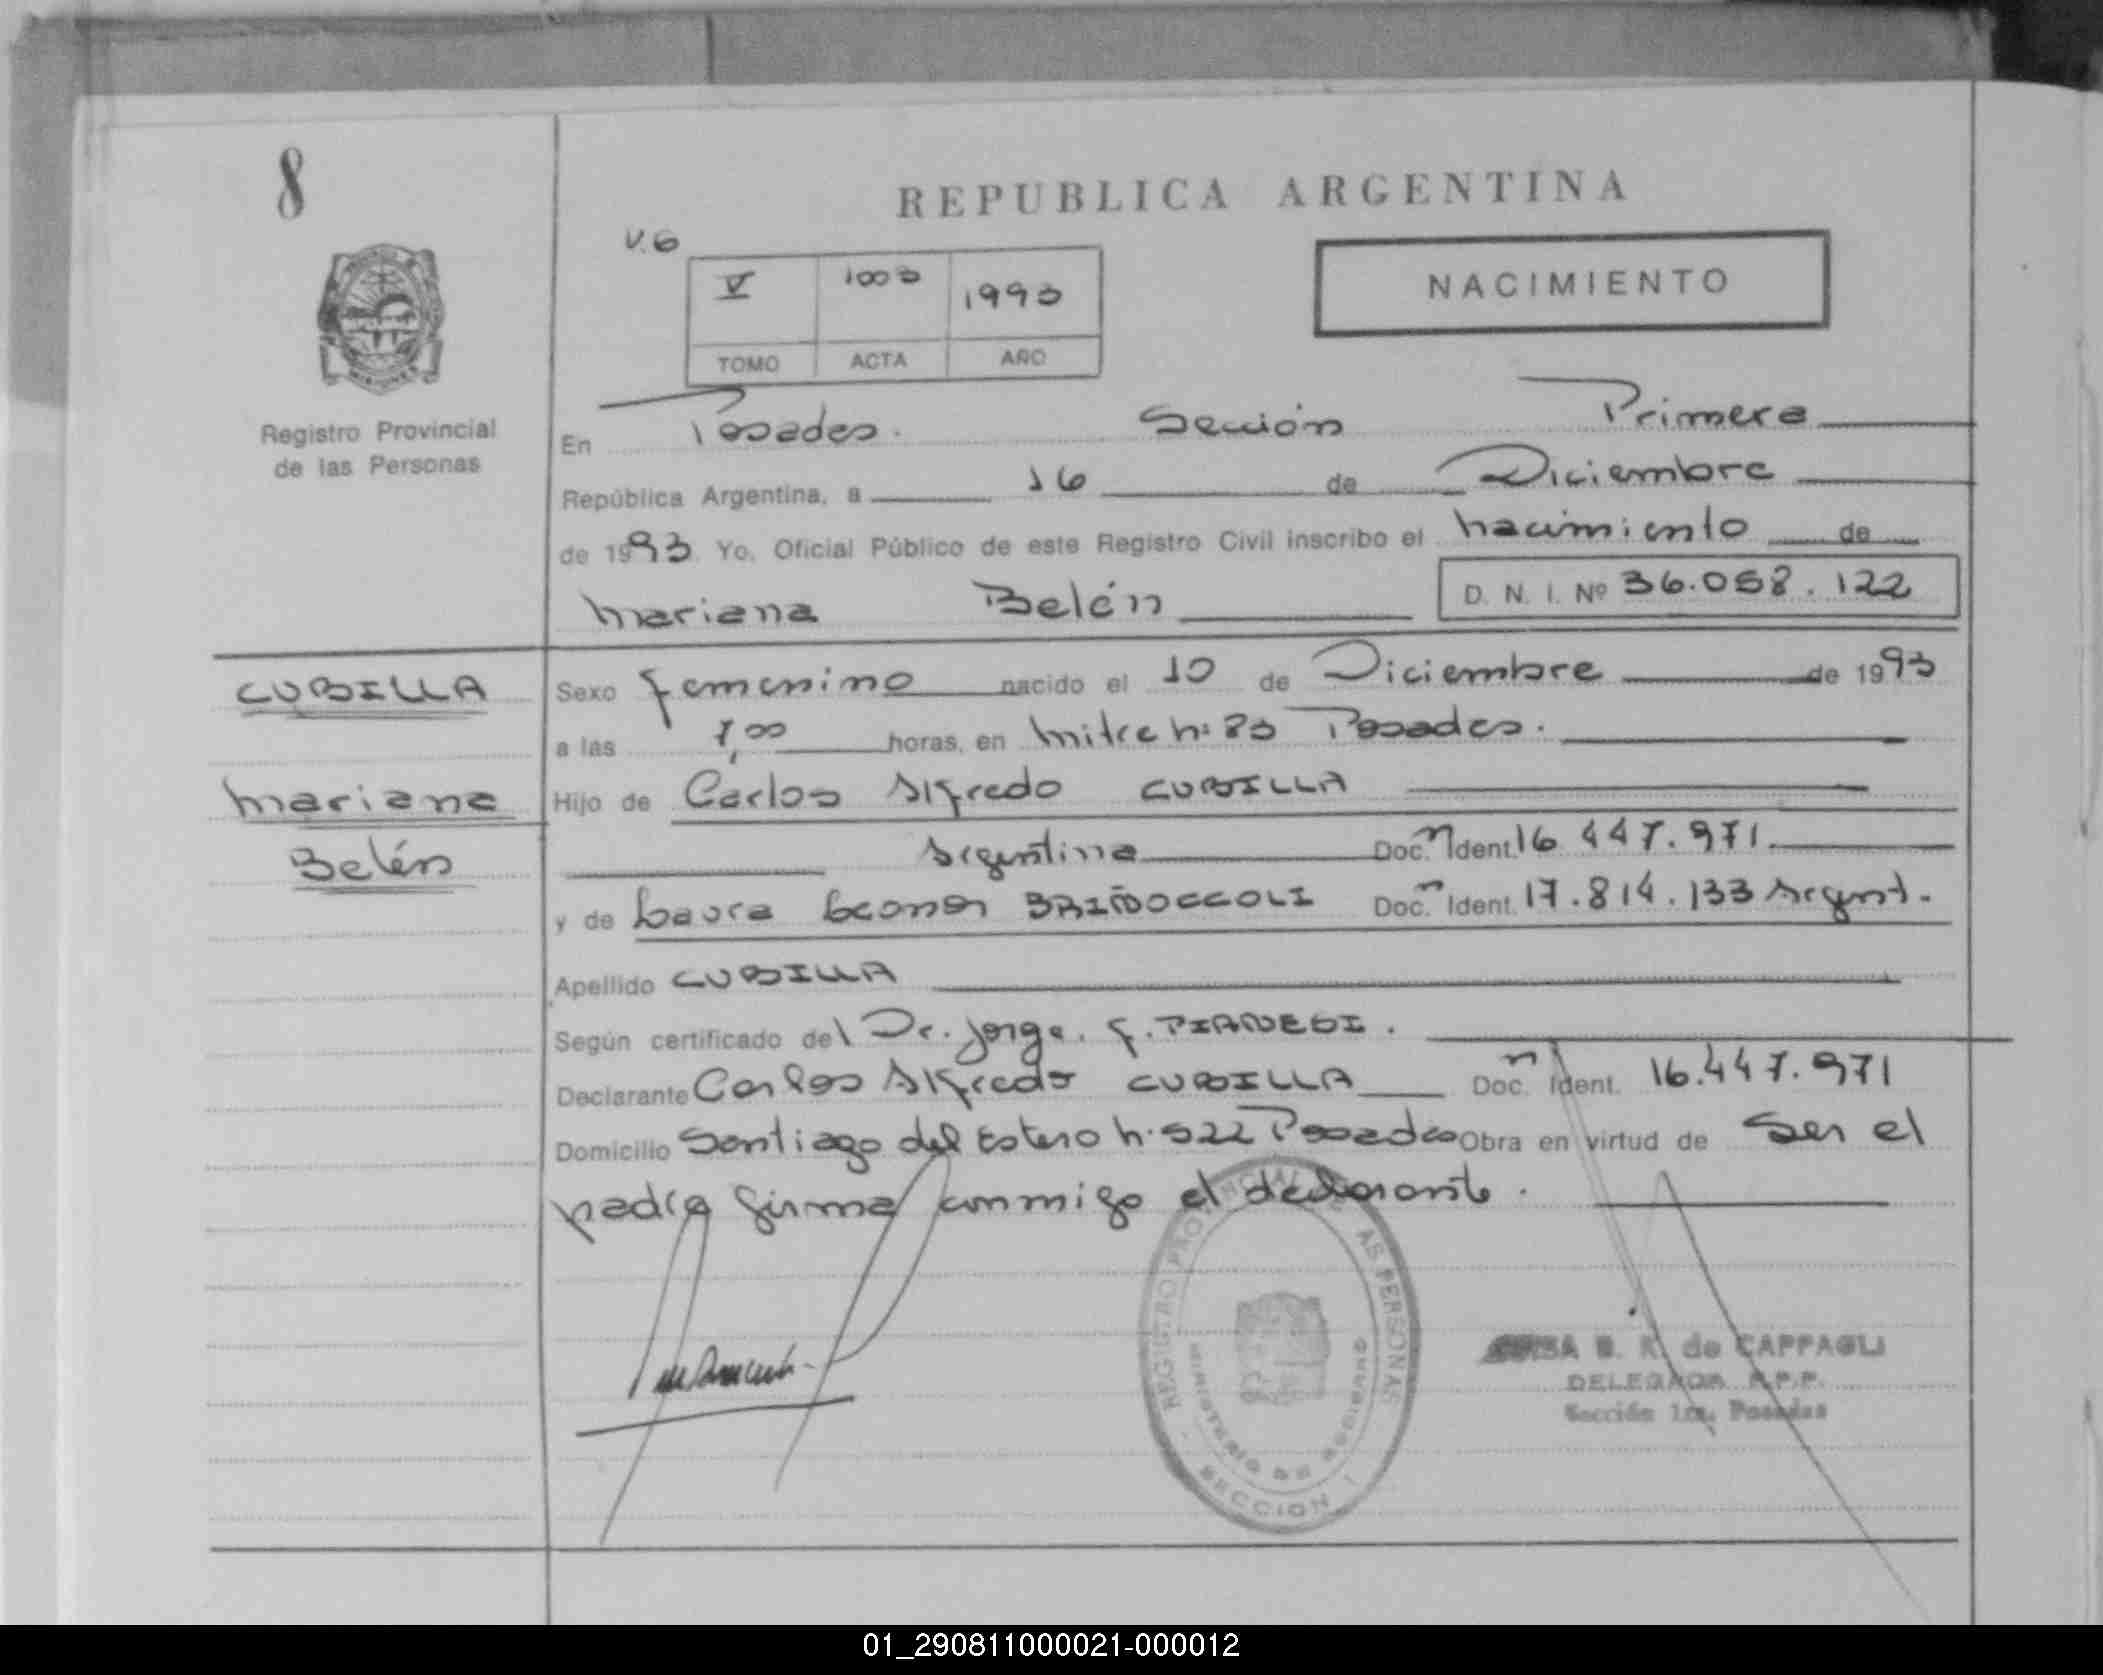 8
REPUBLICA ARGENTINA
V.6
V 1003 1993
TOMO ACTA AÑO
NACIMIENTO
Registro Provincial
de las Personas
En Posadas. Sección Primera
República Argentina, a 16 de Diciembre
de 1993. Yo, Oficial Público de este Registro Civil inscribo el nacimiento de
Mariana Belén D. N. I. Nº 36.058.122
CUBILLA
Mariana
Belén
Sexo femenino nacido el 10 de Diciembre de 1993
a las 7,00 horas, en Mitre Nº 83 Posadas.
Hijo de Carlos Alfredo CUBILLA
Argentina Doc.n Ident. 16.447.971.
y de Laura Leonor Doc.n Ident. 17.814.133 Argent.
Apellido CUBILLA
Según certificado del Dr. Jorge. F. PIANESI.
Declarante Carlos Alfredo CUBILLA Doc.n Ident. 16.447.971
Domicilio Santiago del Estero N. 522 Posadas Obra en virtud de Ser el
padre firma conmigo el declarante.
REGISTRO PROVINCIAL DE LAS PERSONAS
MINISTERIO DE GOBIERNO
SECCION 1
B. R. de CAPPAGLI
DELEGADA R.P.P.
Sección 1ra. Posadas
01_290811000021-000012